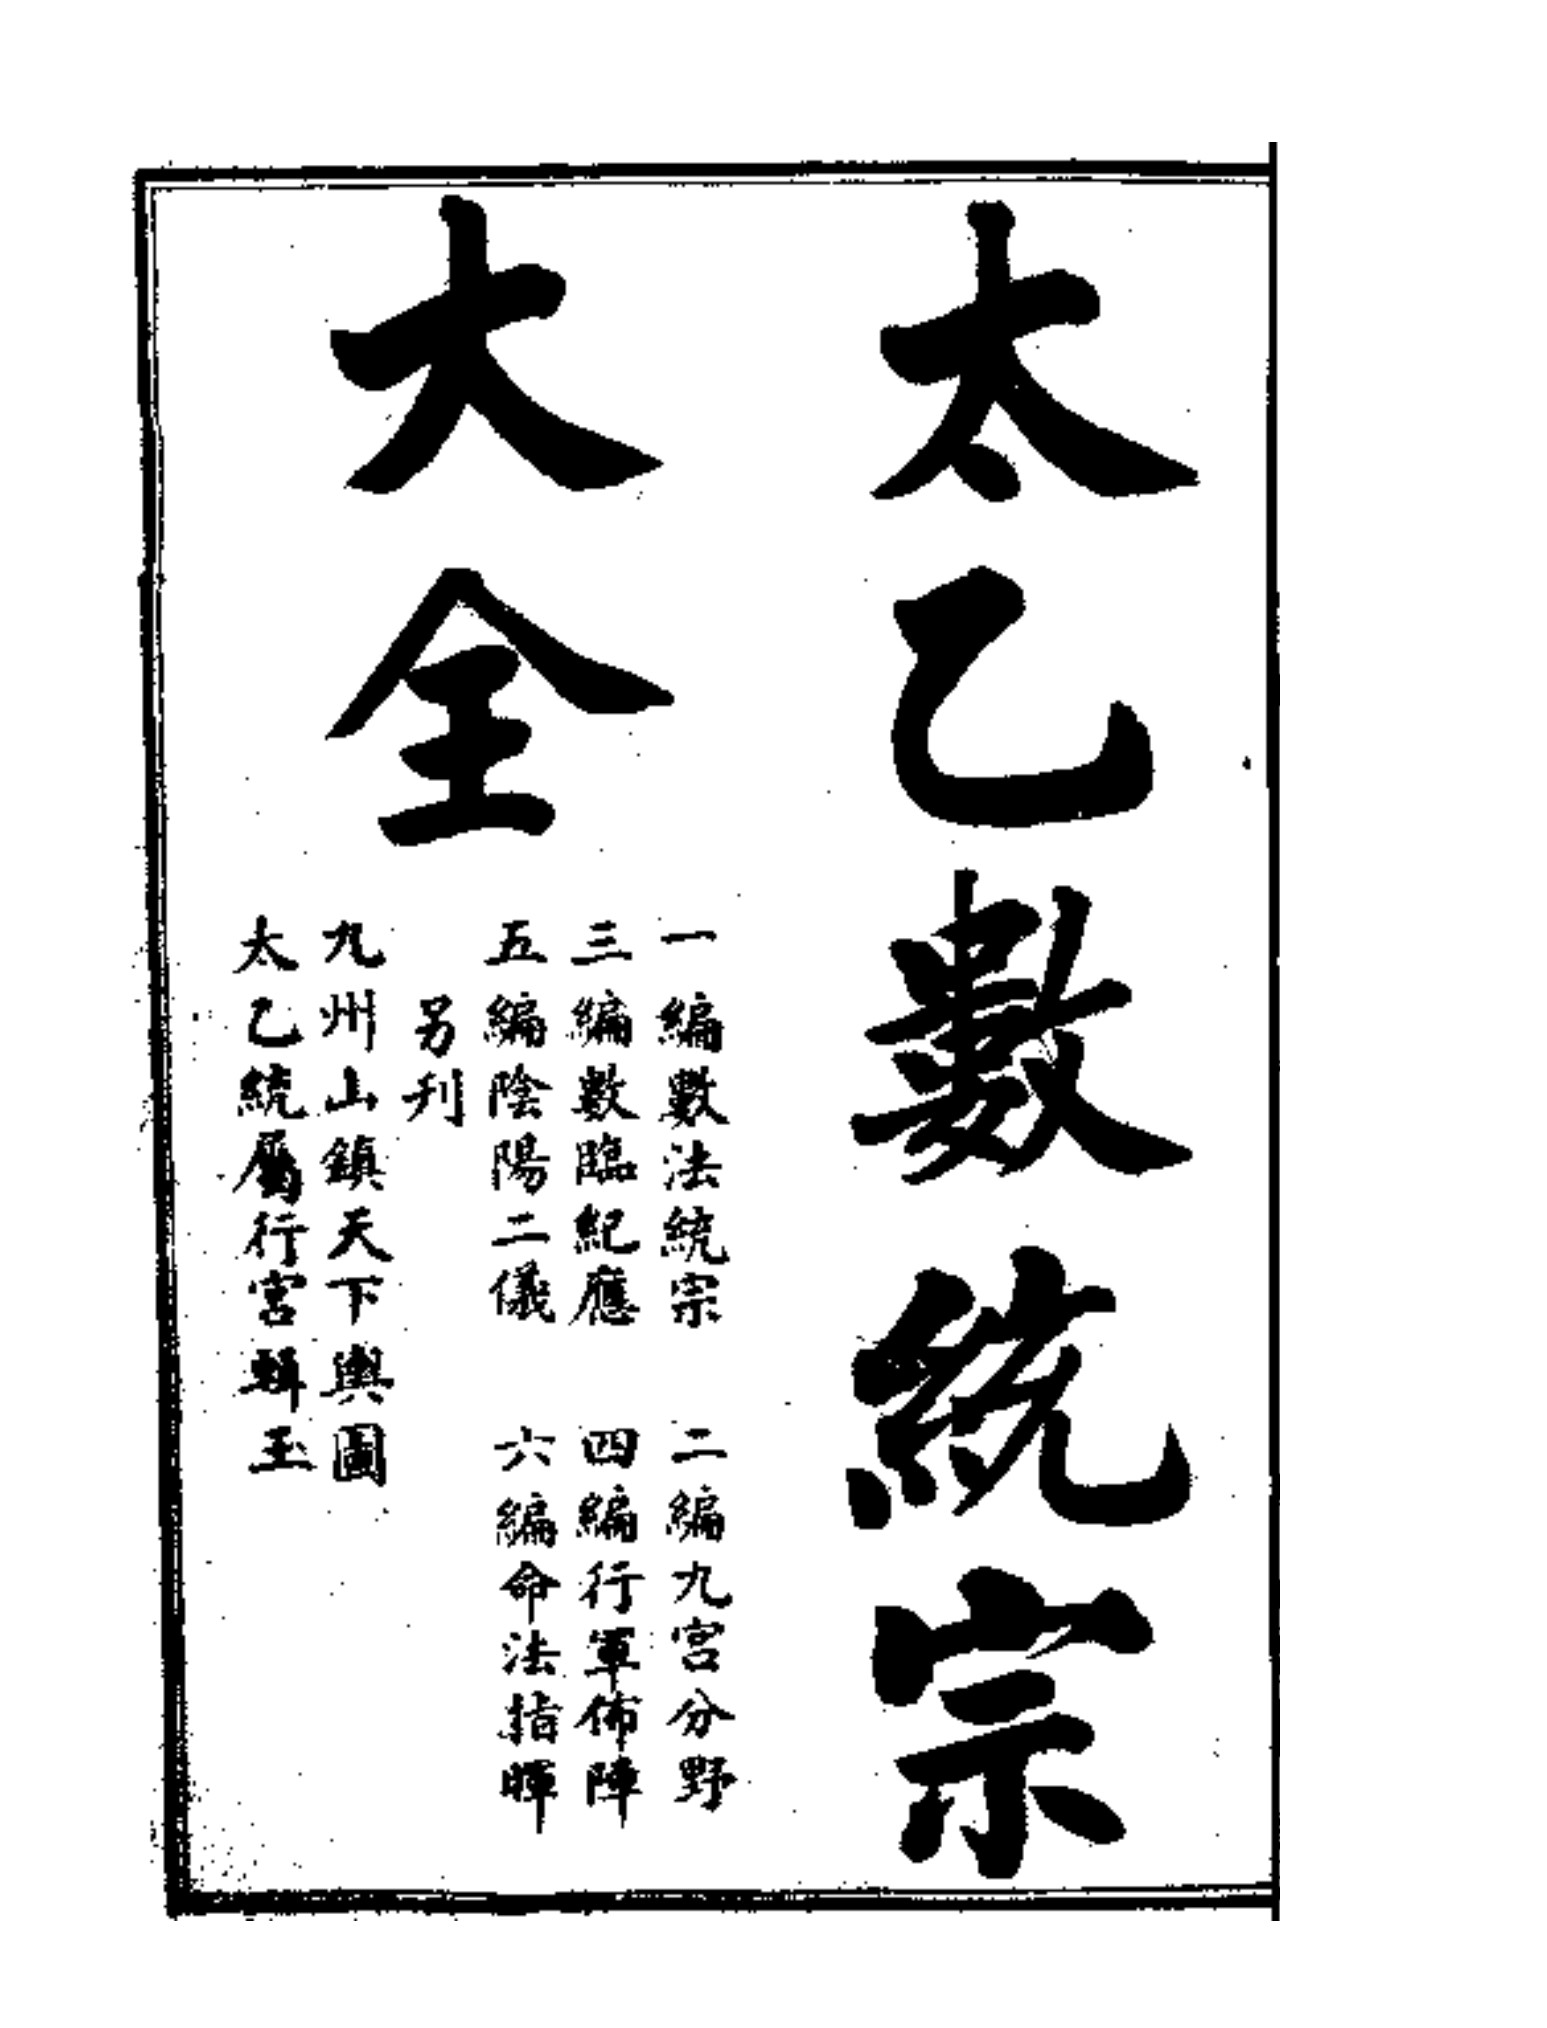 太乙數統宗
大全
一編數法統宗　二編九宮分野
三編數臨紀應　四編行軍佈陣
五編陰陽二儀　六編命法指暉
另刋
九州山鎮天下輿圖
太乙統屬行宮輯玉